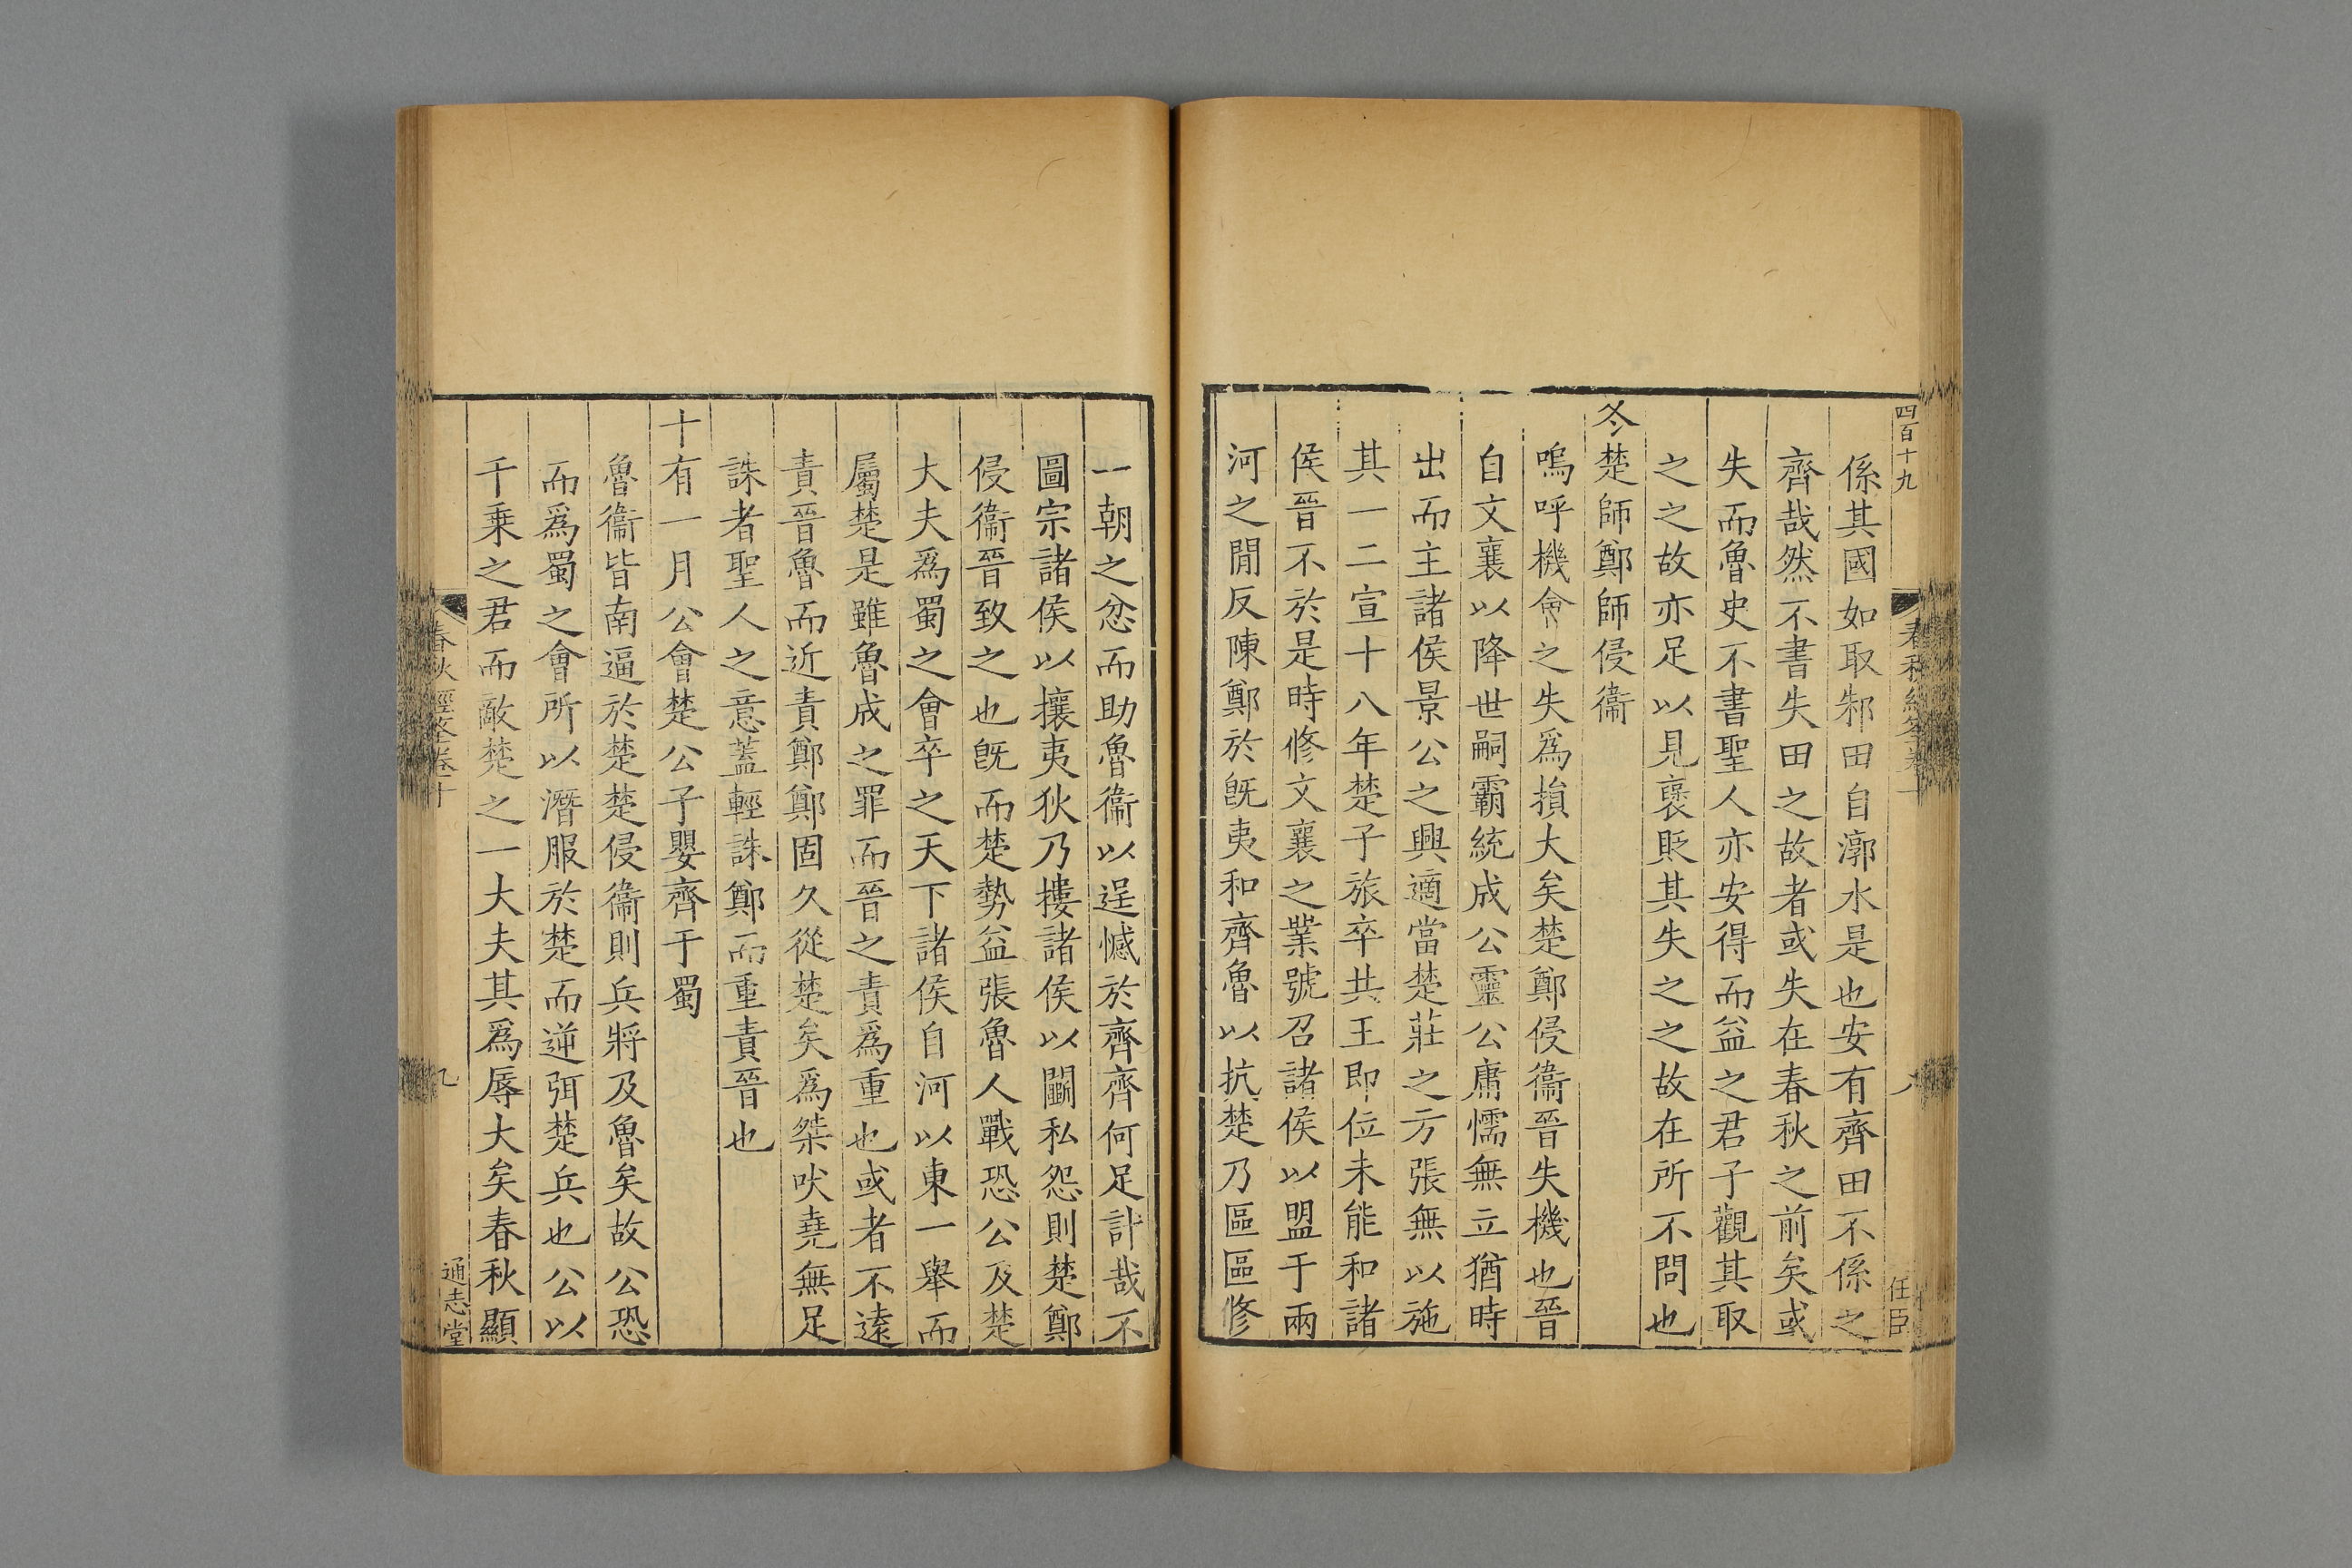 四百十九
任臣
係其國如取邾田自漷水是也安有齊田不係之
齊哉然不書失田之故者或失在春秋之前矣或
失而魯史不書聖人亦安得而益之君子觀其取
之之故亦足以見襃貶其失之之故在所不問也
冬楚師鄭師侵衞
嗚呼機會之失爲損大矣楚鄭侵衞晉失機也晉
自文襄以降世嗣霸統成公靈公庸懦無立猶時
出而主諸侯景公之興適當楚莊之方張無以施
其一二宣十八年楚子旅卒共王即位未能和諸
侯晉不於是時修文襄之業號召諸侯以盟于兩
河之閒反陳鄭於旣夷和齊魯以抗楚乃區區修
一朝之忿而助魯衞以逞憾於齊齊何足計哉不
圖宗諸侯以攘夷狄乃摟諸侯以鬭私怨則楚鄭
侵衞晉致之也旣而楚勢益張魯人戰恐公及楚
大夫爲蜀之會卒之天下諸侯自河以東一舉而
屬楚是雖魯成之罪而晉之責爲重也或者不遠
責晉魯而近責鄭鄭固久從楚矣爲桀吠堯無足
誅者聖人之意蓋輕誅鄭而重責晉也
十有一月公會楚公子嬰齊于蜀
魯衞皆南逼於楚楚侵衞則兵將及魯矣故公恐
而爲蜀之會所以潛服於楚而逆弭楚兵也公以
千乗之君而敵楚之一大夫其爲辱大矣春秋顯
春秋經筌卷十
九
通志堂